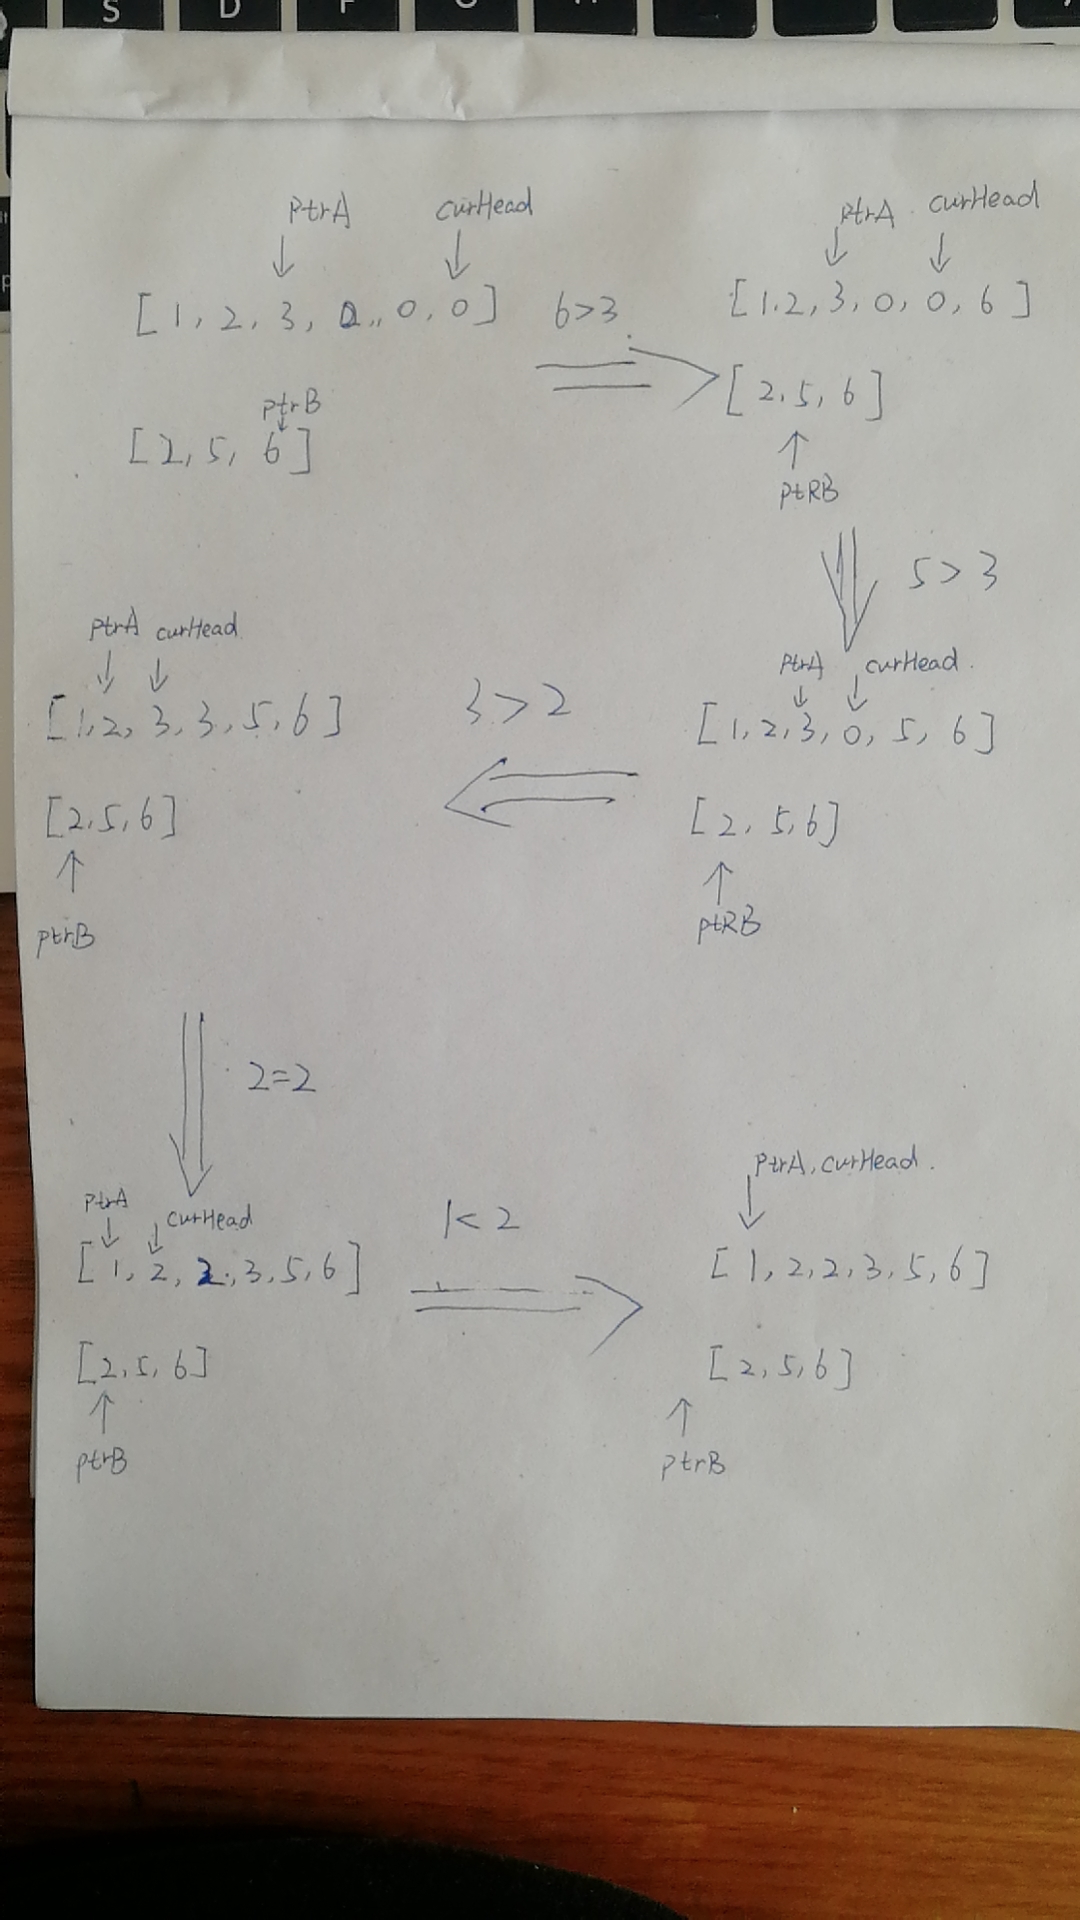 S D F G H
ptrA curHead
[1, 2, 3, 0, 0, 0]
ptrB
[2, 5, 6]
6>3
ptrA curHead
[1,2,3,0,0,6]
[2,5,6]
ptRB
5>3
ptrA curHead.
[1,2,3,0,5,6]
[2,5,6]
ptRB
3>2
ptrA curHead
[1,2,3,3,5,6]
[2,5,6]
ptrB
2=2
ptrA curHead
[1,2,2,3,5,6]
[2,5,6]
ptrB
1<2
ptrA, curHead.
[1,2,2,3,5,6]
[2,5,6]
ptrB